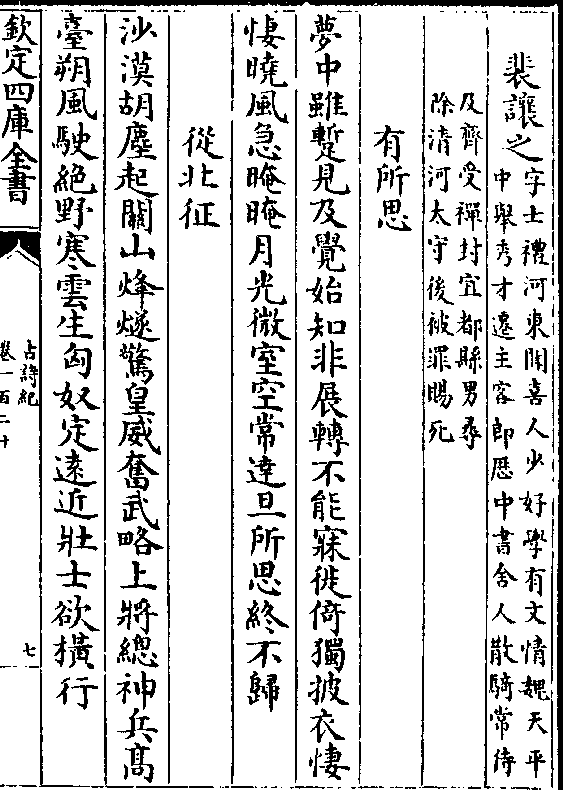 裴讓之字士禮河東聞喜人少好學有文情魏天平
中舉秀才遷主客郎歴中書舍人散騎常侍
及齊受禪封宜都縣男尋
除清河太守後被罪賜死
有所思
夢中雖蹔見及覺始知非展轉不能寐徙倚獨披衣悽
悽曉風急晻晻月光微室空常達旦所思終不歸
從北征
沙漠胡塵起關山烽燧驚皇威奮武略上將總神兵髙
臺朔風駛絶野寒雲生匈奴定遠近壯士欲橫行
欽定四庫全書
古詩紀
卷一百二十
七